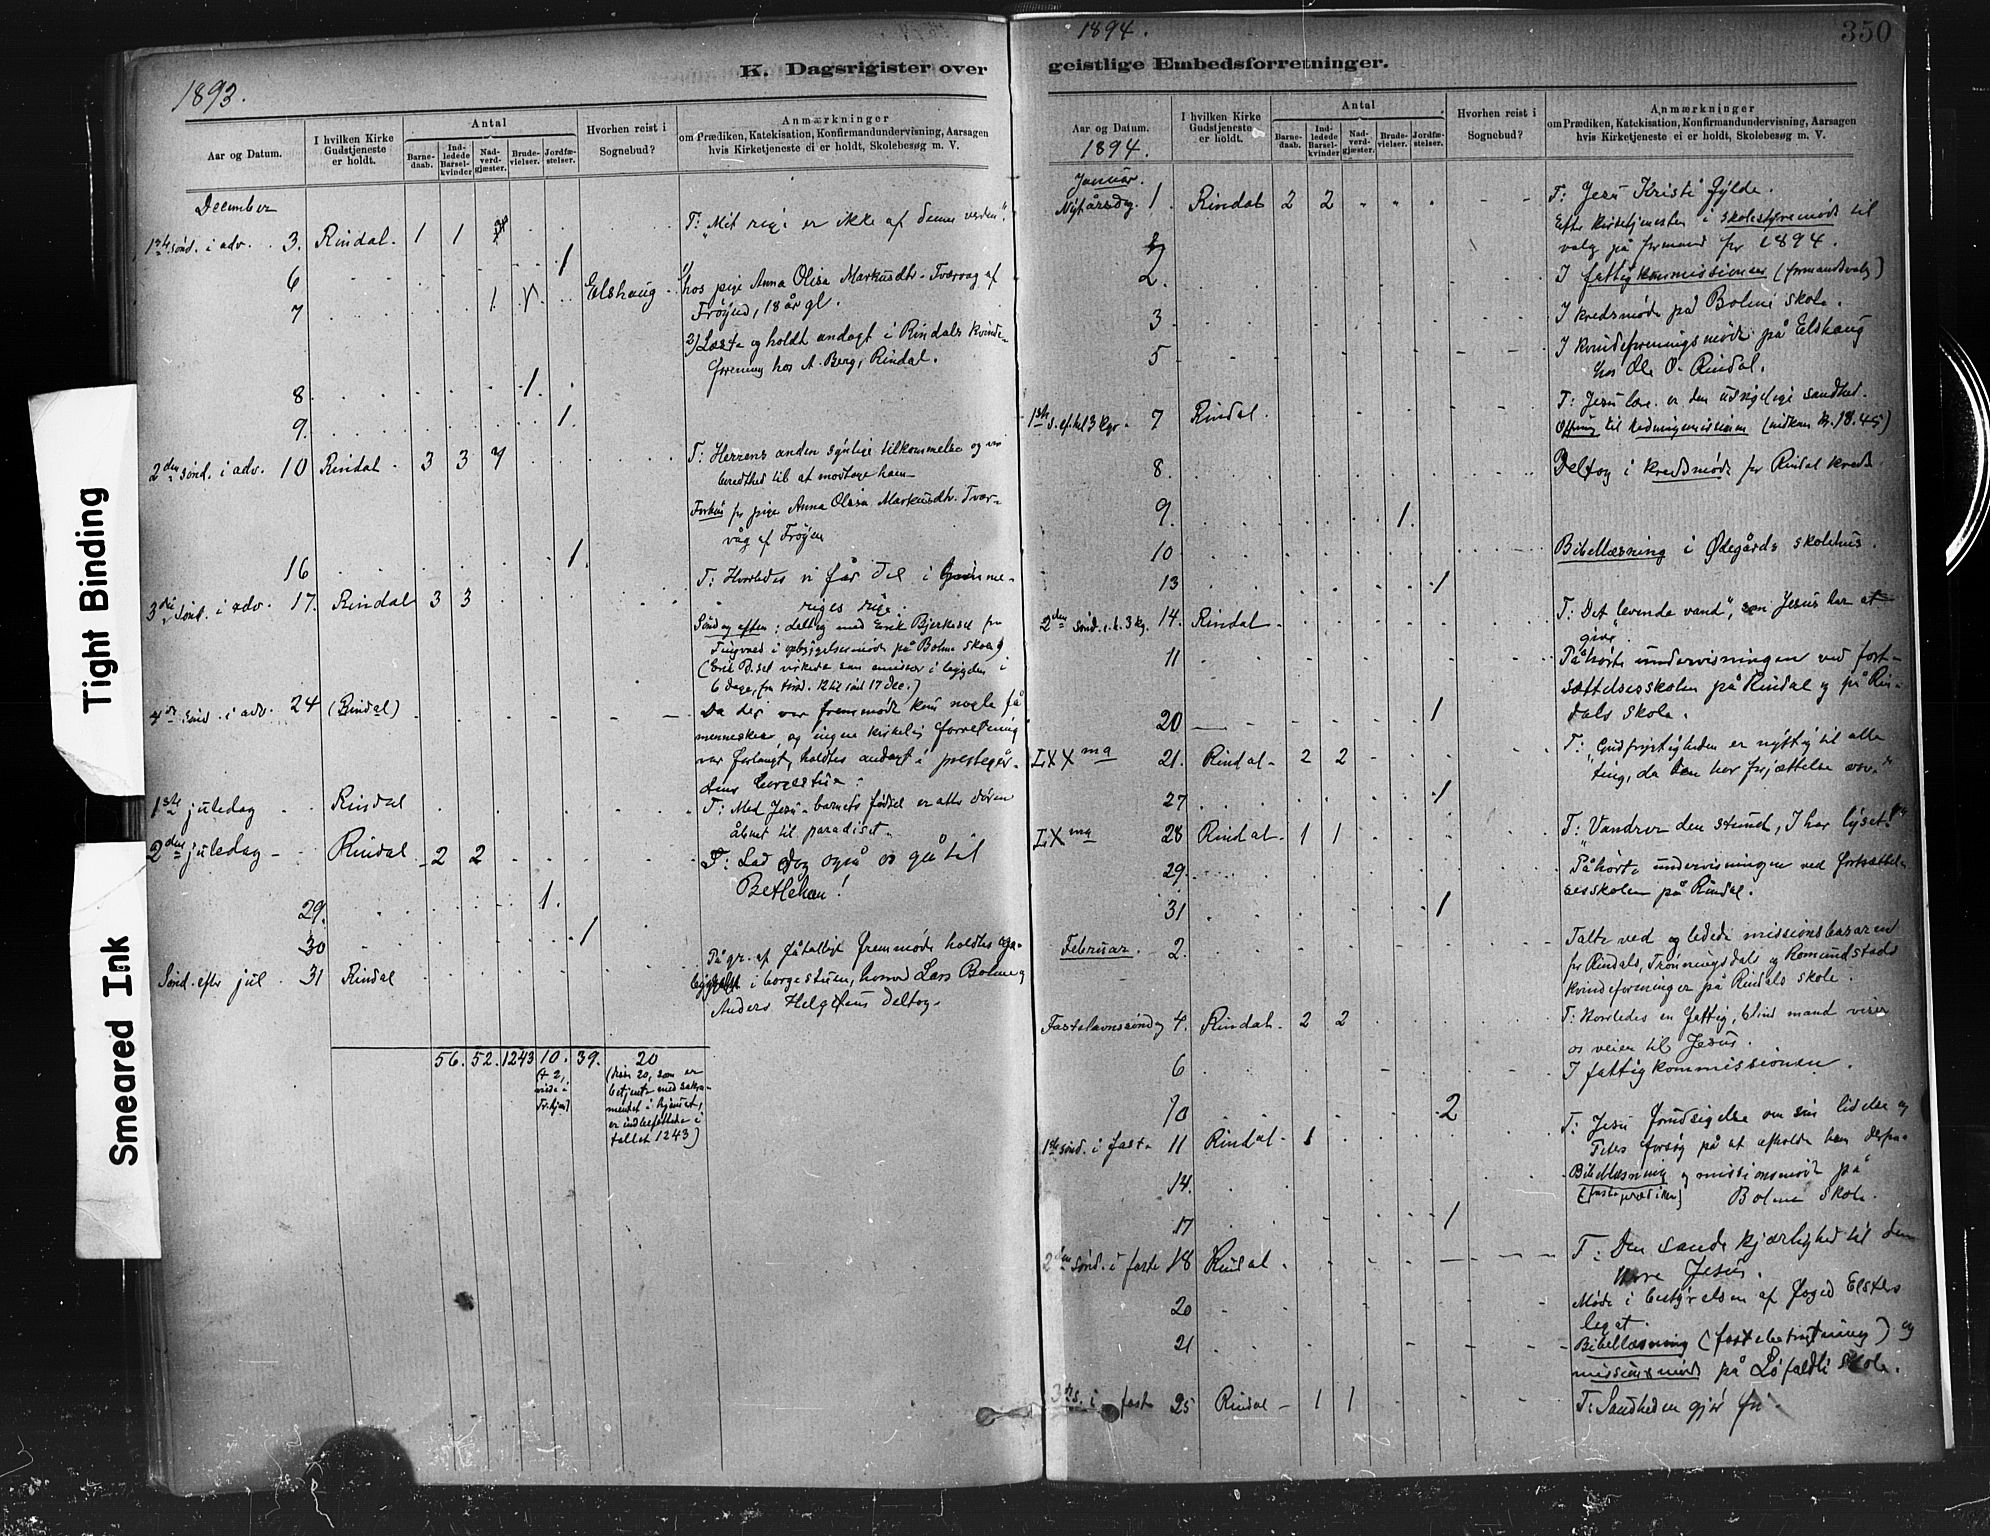 1893.
K. Dagsrigister over
Aar og Datum.
I hvilken Kirke Gudstjeneste er holdt.
Antal
Barnedaab.
Indledede Barselkvinder
Nadverdgjæster.
Brudevielser.
Jordfæstelser.
Hvorhen reist i Sognebud?
Anmærkninger
om Prædiken, Katekisation, Konfirmandundervisning, Aarsagen
hvis Kirketjeneste ei er holdt, Skolebesøg m. V.
December
1ste sønd. i adv. 3. Rindal. 1 1 T: "Mit rige er ikke af denne verden".
6 1
7 1 Elshaug 1) hos pige Anna Olisa Markusdtr. Tværvåg af
Frøyen, 18 år gl.
2) Læste og holdt andagt i Rindals kvinde-
forening hos A. Berg, Rindal.
8 1.
9. 1
2den sønd. i adv. 10 Rindal 3 3 T: Herrens anden synlige tilkommelse og vor
beredthed til at modtage ham
for pige Anna Olisa Markusdtr. Tvær-
våg af Frøyen
16 1
3die sønd. i adv. 17. Rindal 3 3 T: Hvorledes vi får del i
riges rige.
Søndag efterm: deltog med Erik Bjerkeset fra
Tingvold i opbyggelsesmøde på Bolme skole
(Erik B.set virkede som emissær i bygden i
6 dage, fra 12 til 17 dec.)
4de sønd. i adv. 24 (Rindal) Da der var fremmødt kun nogle få
mennesker, og ingen kirkelig forretning
var forlangt, holdtes andagt i prestegår-
dens borgestue.
1ste juledag Rindal T: Med Jesu-barnets fødsel er atter døren
åbnet til paradiset.
2den juledag Rindal 2 2 T: Lad og også os gå til
Betlehem!
29. 1
30 1
Sønd. efter jul. 31 Rindal På gr. af fåtalligt fremmøde holdtes
i borgestuen, hvorved Lars Bolme og
Anders deltog.
56. 52. 1243 10. 39. 20
(+ 2,
viede i
(Disse 20, som er
betjente med sakra-
mentet i hjemmet,
er indbefattede i
tallet 1243)
1894.
350
geistlige Embedsforretninger.
Aar og Datum.
1894.
I hvilken Kirke Gudstjeneste er holdt.
Antal
Barnedaab.
Indledede Barselkvinder
Nadverdgjæster.
Brudevielser.
Jordfæstelser.
Hvorhen reist i Sognebud?
Anmærkninger
om Prædiken, Katekisation, Konfirmandundervisning, Aarsagen
hvis Kirketjeneste ei er holdt, Skolebesøg m. V.
Januar.
Nytårsdag. 1. Rindal 2 2 T: Jesu Kristi fylde.
Efter kirketjenesten i skolestyremøde til
valg på formand for 1894.
2. I fattigkommissionen (formandsvalg)
3 I kredsmøde på Bolme skole.
5 I kvindeforeningsmøde på Elshaug
hos Ole O. Rindal.
1ste s. ef. hel 3 kgr. 7 Rindal. T: Jesu lære er den usvigelige sandhed.
Ofring til hedningemissionen (indkom kr. 18.45)
8. Deltog i kredsmøde for Rindal kreds.
9. 1.
10 Bibellæsning i Ødegårds skolehus.
13 1
2den sønd. e. h. 3 kg. 14. Rindal T: "Det levende vand", som Jesus har at
give.
11 Påhørte undervisningen ved fort-
sættelsesskolen på Rindal og på Rin-
dals skole.
20 1
LXXma 21. Rindal 2 2 T: "Gudfrygtigheden er nyttig til alle
ting, da den har forjættelse
27 1
LXma 28 Rindal 1 1 T: "Vandrer den stund, I har lyset!"
29. Påhørte undervisningen ved fortsættel-
sesskolen på Rindal.
31 1
Februar. 2. Talte ved og ledede missionsbasaren
for Rindals, Trønningsdals og Romundstads
kvindeforeninger på Rindals skole.
Fastelavnssøndag 4. Rindal 2 2 T: Hvorledes en fattig, blind mand viser
os veien til Jesus.
6 I fattigkommissionen.
10 2
1ste sønd. i faste 11 Rindal 1 T: Jesu forudsigelse om sin lidelse og
Peters forsøg på at afholde ham derfra.
14. Bibellæsning og missionsmøde på
(fasteprædiken) Bolme skole.
17 1
2den sønd. i faste 18 Rindal T: Den sande kjærlighed til den
Herre Jesus.
20 Møde i bestyrelsen af foged Elsters
legat.
21 Bibellæsning (fastebetragtning) og
missionsmøde på Løfaldli skole.
3die s. i faste 25 Rindal 1 1 T: Sandheden gjør fri.
Tight Binding
Smeared Ink